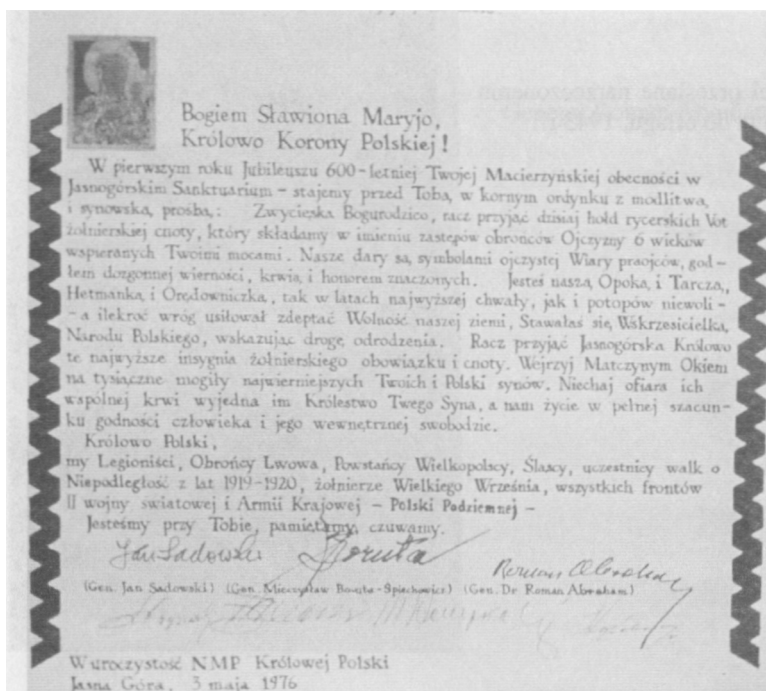 Bogiem Sławiona Maryjo,
Królowo Korony Polskiej!
W pierwszym roku Jubileuszu 600-letniej Twojej Macierzyńskiej obecności w
Jasnogórskim Sanktuarium - stajemy przed Tobą, w kornym ordynku z modlitwą
i synowską prośbą: Zwycięska Bogurodzico, racz przyjąć dzisiaj hołd rycerskich Vot
żołnierskiej cnoty, który składamy w imieniu zastępów obrońców Ojczyzny 6 wieków
wspieranych Twoimi mocami. Nasze dary są symbolami ojczystej Wiary praojców, god-
łem dozgonnej wierności, krwią i honorem znaczonych. Jesteś naszą Opoką i Tarczą,
Hetmanką i Orędowniczką, tak w latach najwyższej chwały, jak i potopów niewoli -
- a ilekroć wróg usiłował zdeptać Wolność naszej ziemi, Stawałaś się Wskrzesicielką
Narodu Polskiego, wskazując drogę odrodzenia. Racz przyjąć Jasnogórska Królowo
te najwyższe insygnia żołnierskiego obowiązku i cnoty. Wejrzyj Matczynym Okiem
na tysiączne mogiły najwierniejszych Twoich i Polski synów. Niechaj ofiara ich
wspólnej krwi wyjedna im Królestwo Twego Syna, a nam życie w pełnej szacun-
ku godności człowieka i jego wewnętrznej swobodzie.
Królowo Polski,
my Legioniści, Obrońcy Lwowa, Powstańcy Wielkopolscy, Śląscy, uczestnicy walk o
Niepodległość z lat 1919-1920, żołnierze Wielkiego Września, wszystkich frontów
II wojny swiatowej i Armii Krajowej - Polski Podziemnej -
Jesteśmy przy Tobie, pamiętamy, czuwamy.
Jan Sadowski Boruta Roman Abraham
(Gen. Jan Sadowski) (Gen. Mieczysław Boruta-Spiechowicz) (Gen. Dr. Roman Abraham)
W uroczystość NMP Królowej Polski
Jasna Góra, 3 maja 1976